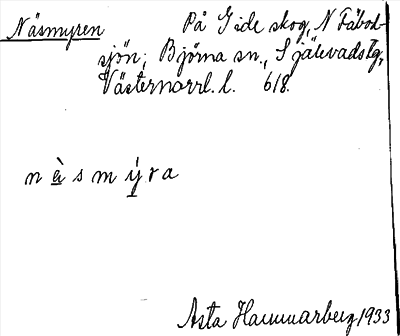 Näsmyren På Gide skog, N Fäbod-
sjön; Björna sn., Själevads tg,
Västernorrl. l. 618.
nὲsmy̆ra
Asta Hammarberg 1933